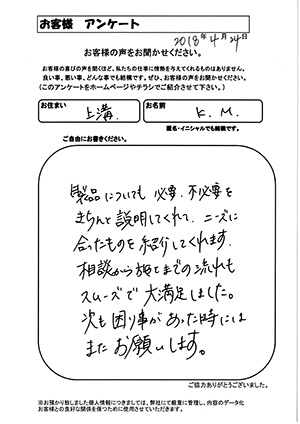 お客様 アンケート
2018年4月24日
お客様の声をお聞かせください。
お客様の喜びの声を聞くほど、私たちの仕事に情熱を与えてくれるものはありません。
良い事、悪い事、どんな事でも結構です。ぜひ、お客様の声をお聞かせください。
(このアンケートをホームページやチラシでご紹介させて下さい。)
お住まい 上溝. お名前 K.M.
匿名・イニシャルでも結構です。
ご自由にお書きください。
製品についても 必要、不必要を
きちんと説明してくれて、ニーズに
合ったものを紹介してくれます。
相談から施工までの流れも
スムーズで 大満足しました。
次も困り事があった時には
またお願いします。
ご協力ありがとうございました。
※お預かり致しました個人情報につきましては、弊社にて厳重に管理し、内容のデータ化
お客様との良好な関係を保つために使用させていただきます。